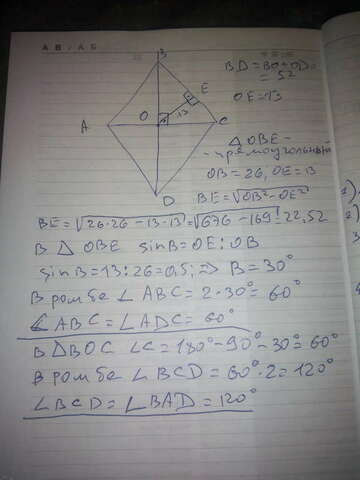 B
E
O
13
A
C
D
BD = BO + OD =
= 52
OE = 13
△OBE -
- прямоугольный
OB = 26, OE = 13
BE = √OB² - OE²
BE = √26·26 - 13·13 = √676 - 169 = 22,52
В △ OBE sinB = OE : OB
sinB = 13 : 26 = 0,5; => B = 30°
В ромбе ∠ABC = 2·30° = 60°
∠ABC = ∠ADC = 60°
В △BOC ∠C = 180° - 90° - 30° = 60°
В ромбе ∠BCD = 60°·2 = 120°
∠BCD = ∠BAD = 120°